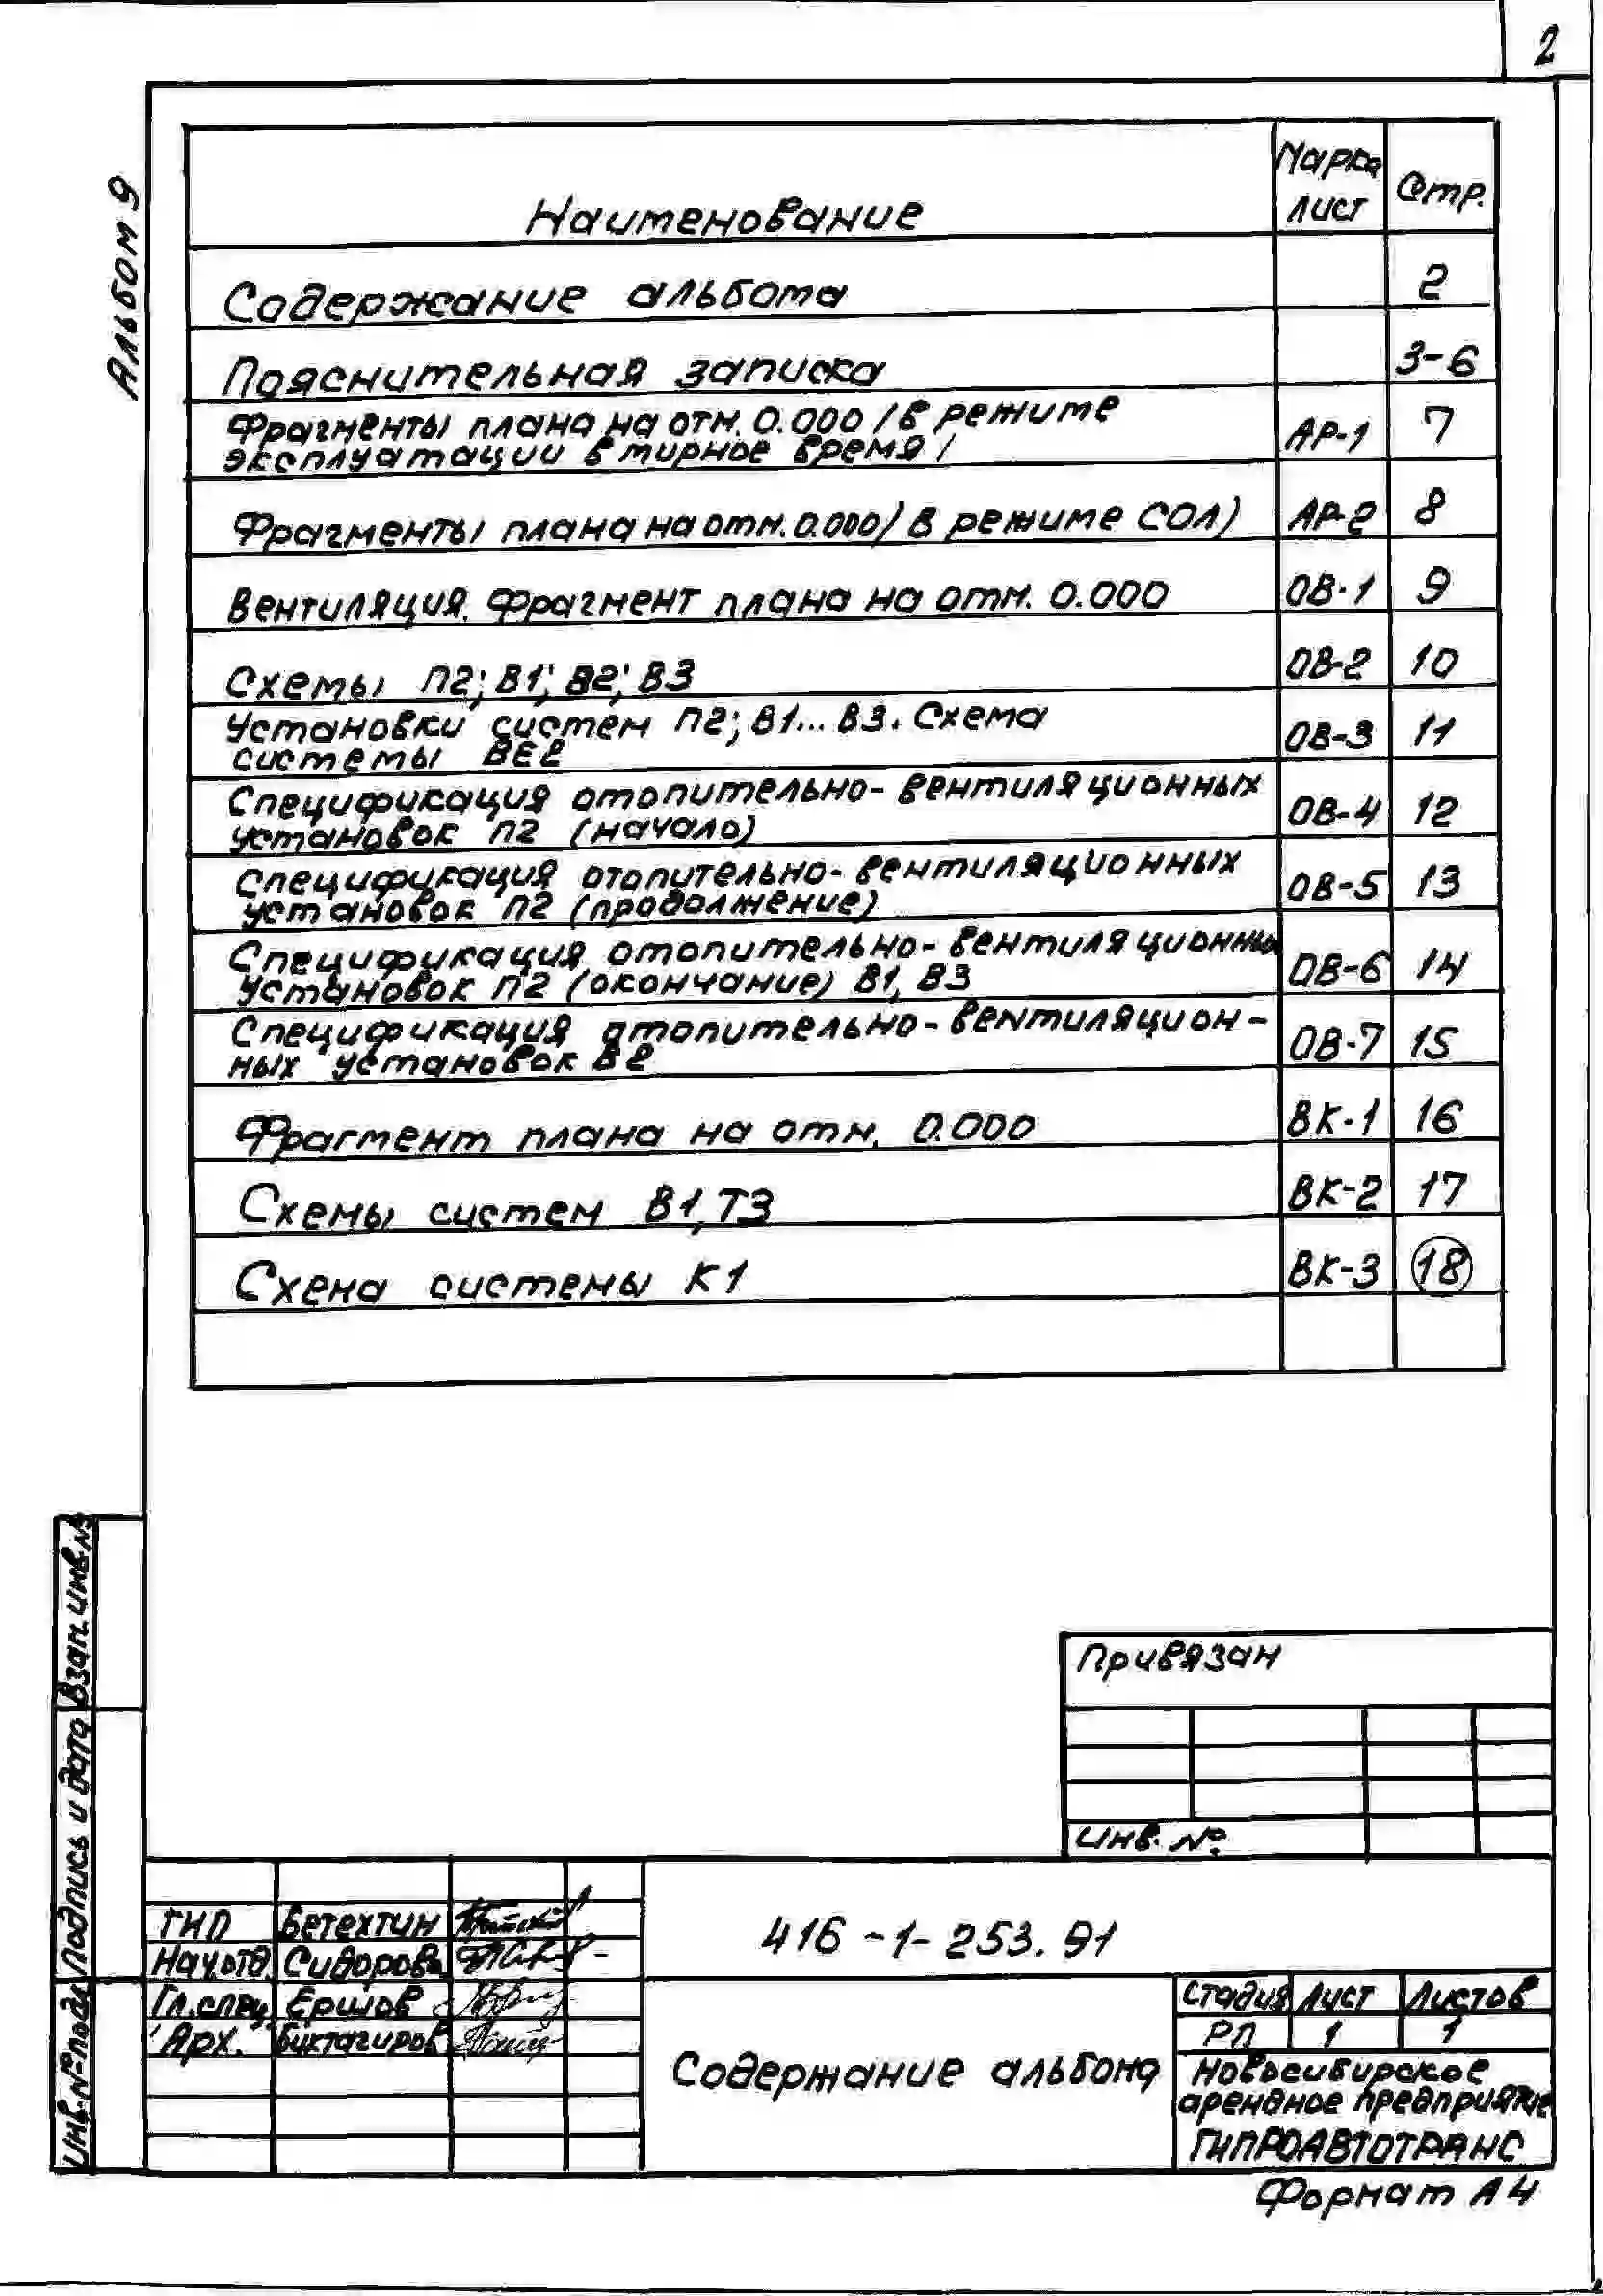 2
Альбом 9
Наименование
Марка
лист
Стр.
Содержание альбома
2
Пояснительная записка
3-6
Фрагменты плана на отм. 0.000 /в режиме
эксплуатации в мирное время/
АР-1
7
Фрагменты плана на отм. 0.000/ в режиме СОЛ)
АР-2
8
Вентиляция. Фрагмент плана на отм. 0.000
ОВ-1
9
Схемы П2; В1; В2; В3
ОВ-2
10
Установки систем П2; В1... В3. Схема
системы ВЕ2
ОВ-3
11
Спецификация отопительно-вентиляционных
установок П2 (начало)
ОВ-4
12
Спецификация отопительно-вентиляционных
установок П2 (продолжение)
ОВ-5
13
Спецификация отопительно-вентиляционных
установок П2 (окончание) В1, В3
ОВ-6
14
Спецификация отопительно-вентиляцион-
ных установок В2
ОВ-7
15
Фрагмент плана на отм. 0.000
ВК-1
16
Схемы систем В1, Т3
ВК-2
17
Схема системы К1
ВК-3
18
Привязан
Инв. №
Взам. инв. №
Подпись и дата
Инв. № подл
ГИП Бетехтин
Нач.отд. Сидорова
Гл.спец. Ершов
Арх. Бихтагиров
416-1-253.91
Содержание альбома
Стадия Лист Листов
РП 1 1
Новосибирское
арендное предприятие
ГИПРОАВТОТРАНС
Формат А4